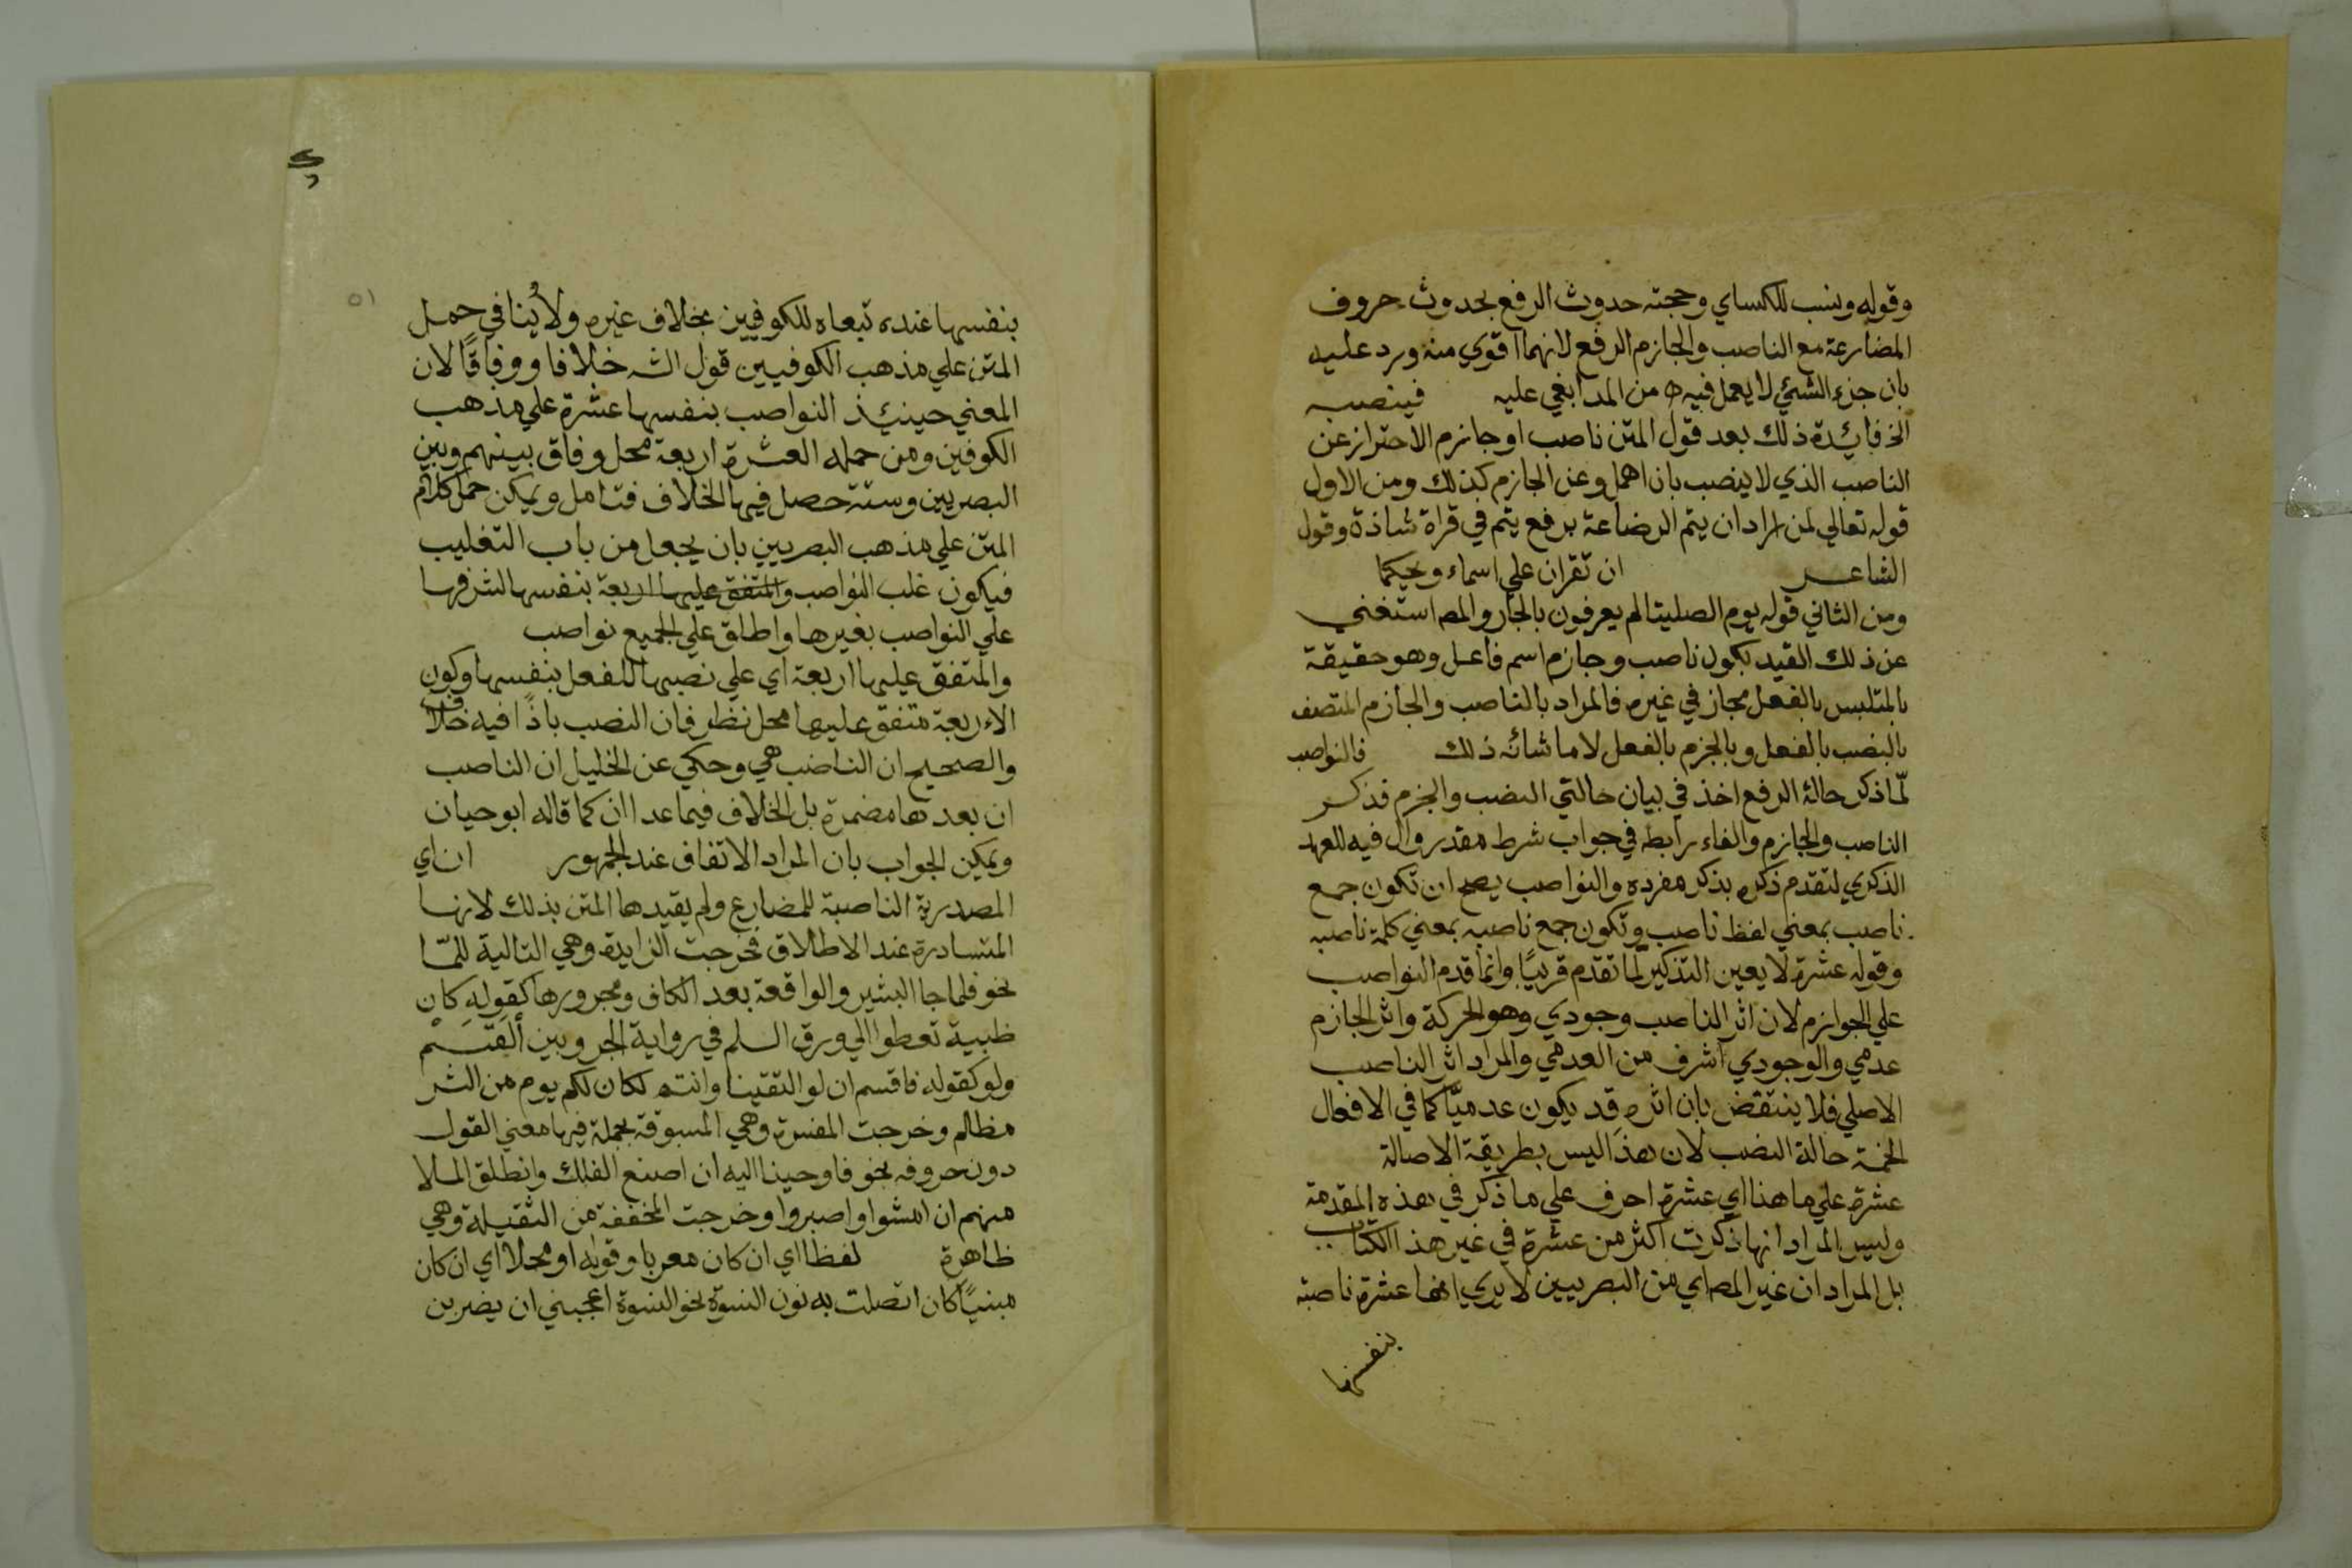 وقوله ونسب للكساي وحجته حدوث الرفع بحدوث حروف
المضارعة مع الناصب والجازم الرفع لانهما اقوي منه ورد عليه
بان جزء الشئي لا يعمل فيه من المدابغي عليه فينصبه
الخ فايدة ذلك بعد قول المتن ناصب او جازم الاحتراز عن
الناصب الذي لا ينصب بان اهمل وعن الجازم كذلك ومن الاول
قوله تعالي لمن اراد ان يتم الرضاعة برفع يتم في قراة شاذة وقول
الشاعر ان تقران علي اسماء ويحكما
ومن الثاني قوله يوم الصليتا لم يعرفون بالجار والمص استغني
عن ذلك القيد بكون ناصب وجازم اسم فاعل وهو حقيقة
بالمتلبس بالفعل مجاز في غيره فالمراد بالناصب والجازم المتصف
بالنصب بالفعل وبالجزم بالفعل لا ما شانه ذلك فالنواصب
لمّا ذكر حالة الرفع اخذ في بيان حالتي النصب والجزم فذكر
الناصب والجازم والفاء رابطه في جواب شرط مقدر وال فيه للعهد
الذكري لتقدم ذكره بذكر مفرده والنواصب يصح ان تكون جمع
ناصب بمعني لفظ ناصب وتكون جمع ناصبه بمعني كلمة ناصبه
وقوله عشرة لا يعين التذكير لما تقدم قريبًا وانما قدم النواصب
علي الجوازم لان اثر الناصب وجودي وهو الحركة واثر الجازم
عدمي والوجودي اشرف من العدمي والمراد اثر الناصب
الاصلي فلا ينتقض بان اثره قد يكون عدميّا كما في الافعال
الخمة حالة النصب لان هذا ليس بطريقة الاصالة
عشرة علي ما هنا اي عشرة احرف علي ما ذكر في هذه المقدمة
وليس المراد انها ذكرت اكثر من عشرة في غير هذا الكتاب
بل المراد ان غير المص اي من البصريين لا يري انها عشرة ناصبة
بنفسها
٥١
بنفسها عنده تبعاه للكوفيين بخلاف غيره ولا يُنافي حمل
المتن علي مذهب الكوفيين قول الشه خلافا ووفاقًا لان
المعني حينئذ النواصب بنفسها عشرة علي مذهب
الكوفين ومن حمله العشرة اربعة محل وفاق بينهم وبين
البصريين وستة حصل فيها الخلاف فتامل ويمكن حمل كلام
المتن علي مذهب البصريين بان يجعل من باب التغليب
فيكون غلب النواصب والمتفق عليها اربعة بنفسها لشرفها
علي النواصب بغيرها واطلق علي الجميع نواصب
والمتفق عليها اربعة اي علي نصبها للفعل بنفسها وكون
الاربعة متفق عليها محل نظر فان النصب باذًا فيه خلاف
والصحيح ان الناصب هي وحكي عن الخليل ان الناصب
ان بعدها مضمرة بل الخلاف فيما عدا ان كما قاله ابو حيان
ويمكن الجواب بان المراد الاتفاف عند الجمهور ان اي
المصدرية الناصبة للمضارع ولم يقيدها المتن بذلك لانها
المتسادرة عند الاطلاق فخرجت الزايدة وهي التالية للمّا
نحو فلما جا البشير والواقعة بعد الكاف ومجرورها كقوله كان
ظبية تعطوا الي ورق السلم في رواية الجر وبين القسم
ولو كقوله فاقسم ان لو التقينا وانتم لكان لكم يوم من الشر
مظالم وخرجت المفسرة وهي المسبوقة بجملة فيها معني القول
دون حروفه نحو فاوحينا اليه ان اصنع الفلك وانطلق الملا
منهم ان امشوا واصبروا وخرجت المخففة من الثقيلة وهي
ظاهرة لفظا اي ان كان معربا وقوله او محلا اي ان كان
مبنيًا كان اتصلت به نون النسوة نحو النسوة اعجبني ان يضربن